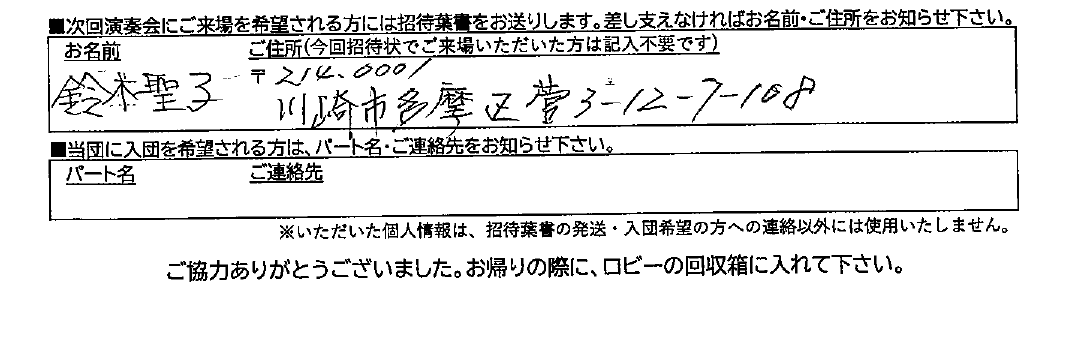 ■次回演奏会にご来場を希望される方には招待葉書をお送りします。差し支えなければお名前・ご住所をお知らせ下さい。
お名前 ご住所(今回招待状でご来場いただいた方は記入不要です)
鈴木聖子 〒214.0001
川崎市多摩区菅3-12-7-108
■当団に入団を希望される方は、パート名・ご連絡先をお知らせ下さい。
パート名 ご連絡先
※いただいた個人情報は、招待葉書の発送・入団希望の方への連絡以外には使用いたしません。
ご協力ありがとうございました。お帰りの際に、ロビーの回収箱に入れて下さい。